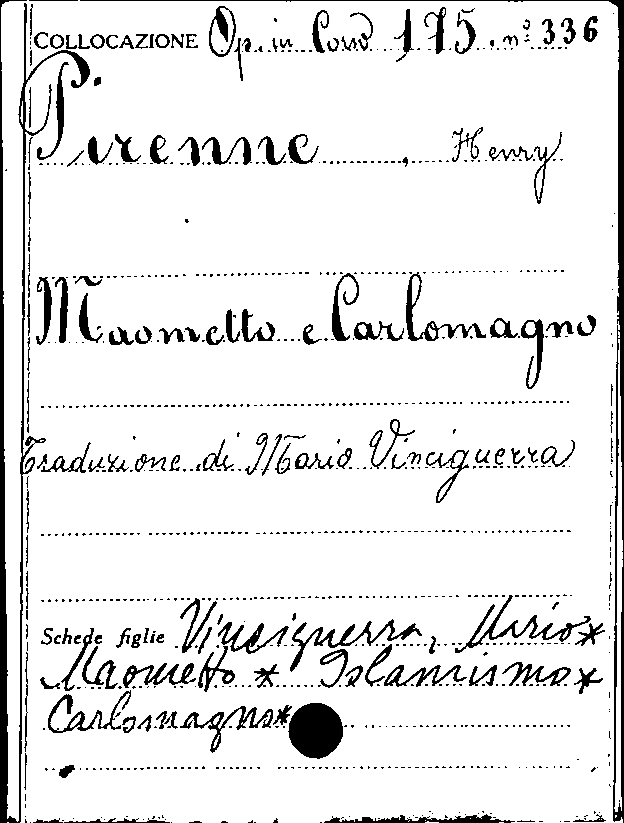 COLLOCAZIONE Op. in Corso 175. nº 336
Pirenne, Henry
Maometto e Carlomagno
Traduzione di Mario Vinciguerra
Schede figlie Vinciguerra, Mario*
Maometto * Islamismo*
Carlomagno*